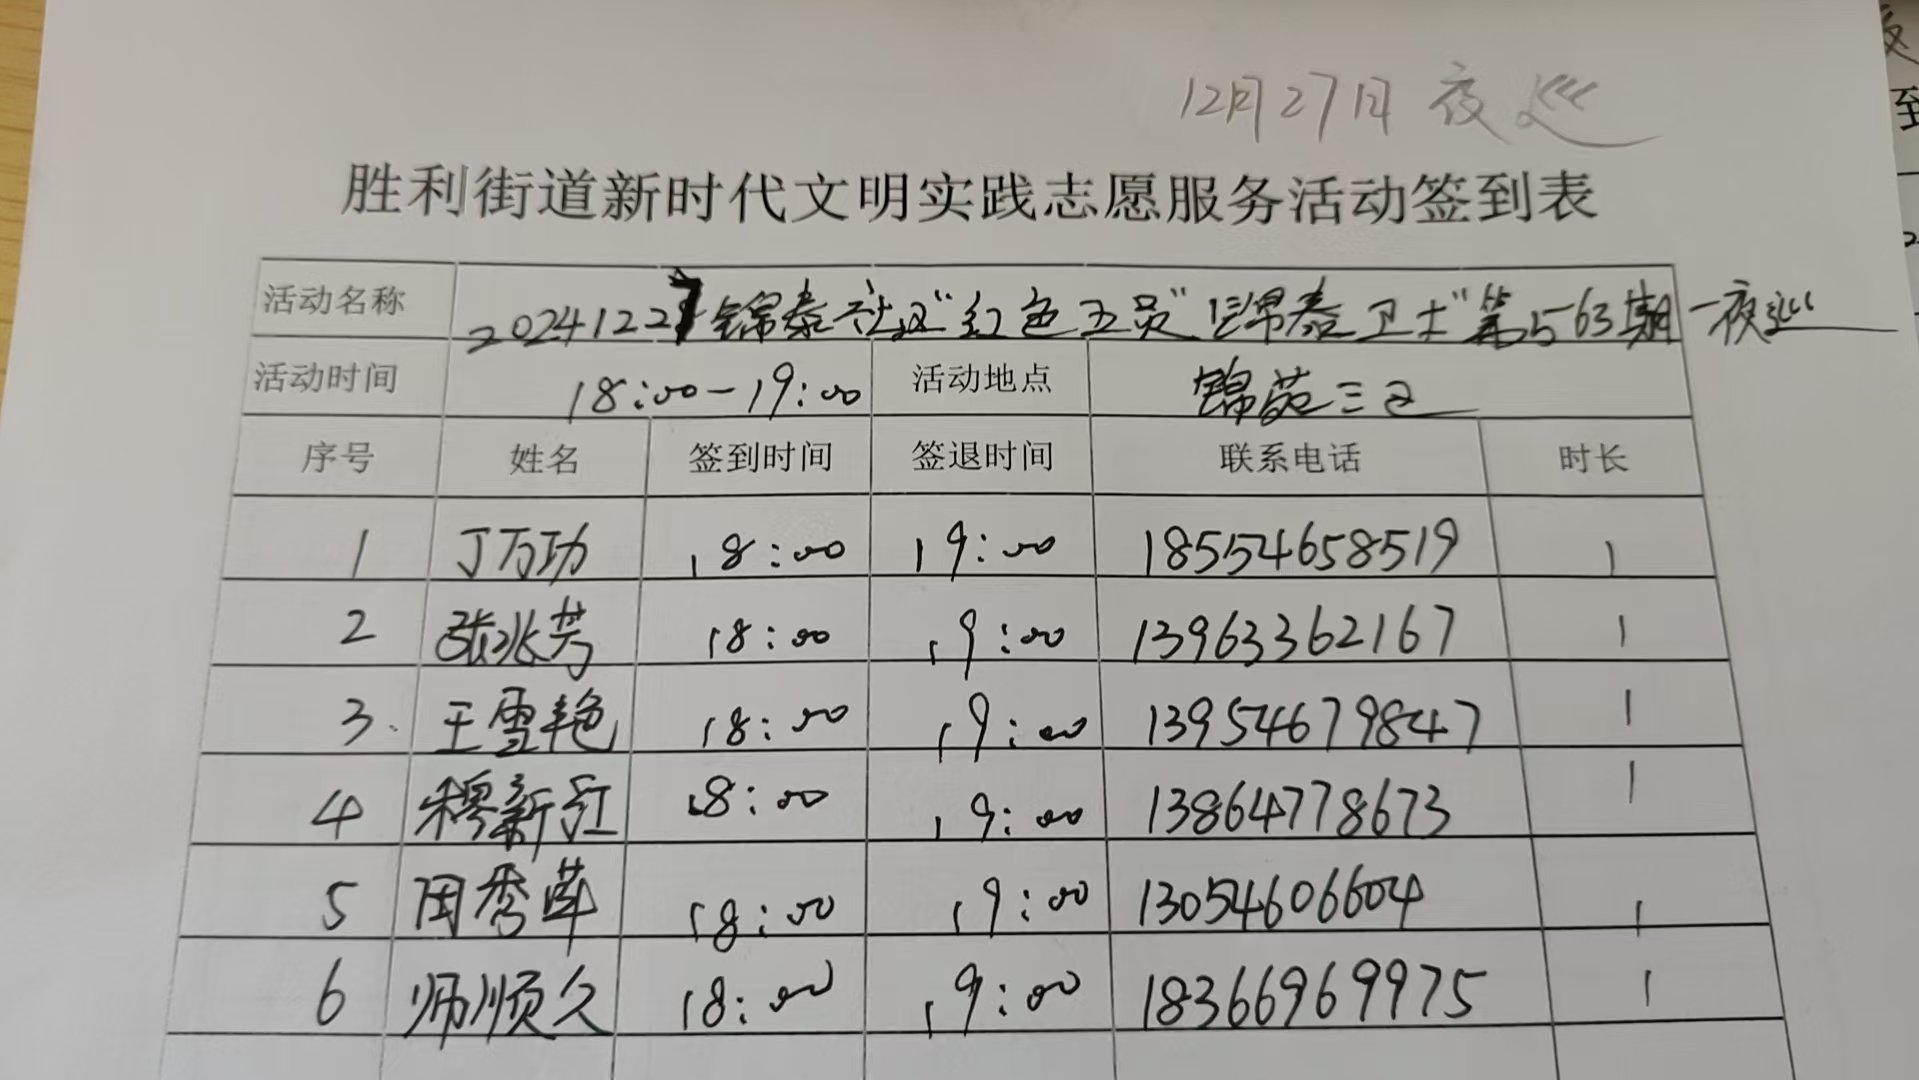 12月27日 夜巡
胜利街道新时代文明实践志愿服务活动签到表
活动名称 20241227锦泰社区"红色五员"锦泰卫士"第563期-夜巡
活动时间 18:00-19:00 活动地点 锦苑三区
序号 姓名 签到时间 签退时间 联系电话 时长
1 丁万功 18:00 19:00 18554658519 1
2 张兆芳 18:00 19:00 13963362167 1
3. 王雪艳 18:00 19:00 13954679847 1
4 穆新红 18:00 19:00 13864778673 1
5 田秀莲 18:00 19:00 13054606604 1
6 师顺久 18:00 19:00 18366969975 1